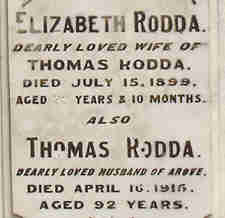 ELIZABETH RODDA.
DEARLY LOVED WIFE OF
THOMAS RODDA.
DIED JULY 15, 1899.
AGED YEARS & 10 MONTHS.
ALSO
THOMAS RODDA.
DEARLY LOVED HUSBAND OF ABOVE,
DIED APRIL 16, 1915,
AGED 92 YEARS.